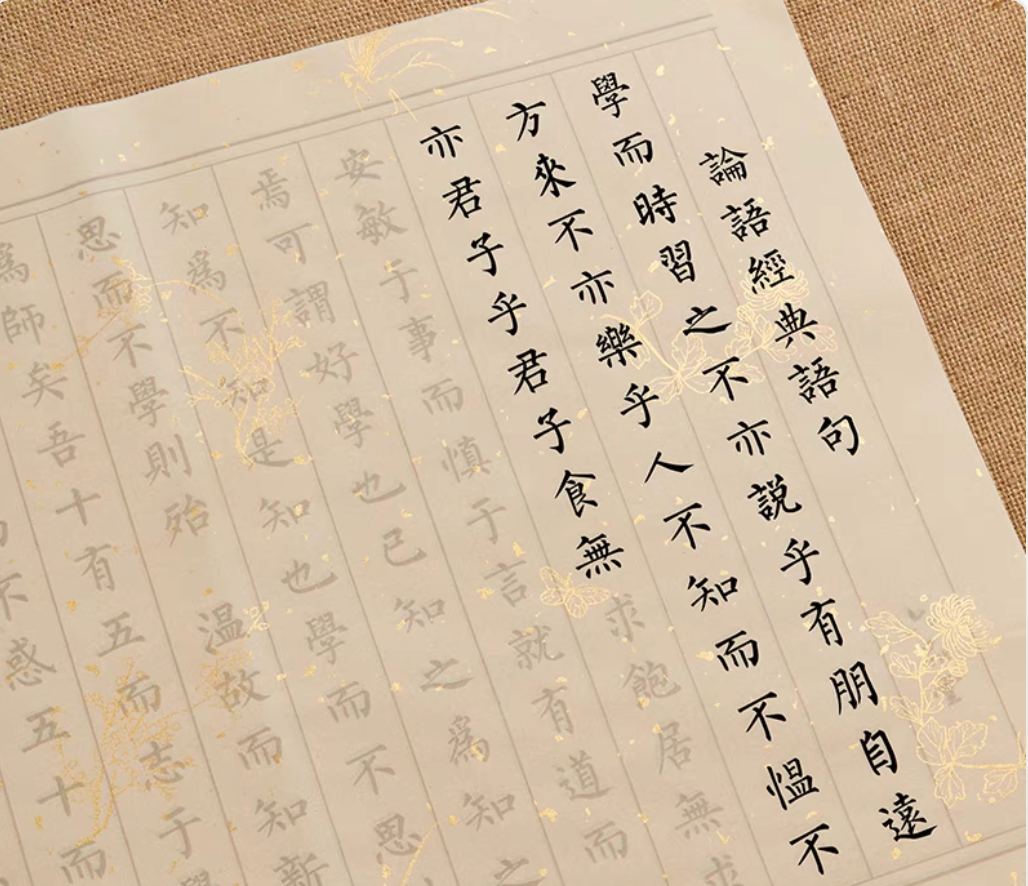 論語經典語句
學而時習之不亦説乎有朋自遠
方來不亦樂乎人不知而不愠不
亦君子乎君子食無求飽居無求
安敏于事而慎于言就有道而
焉可謂好學也已知之爲知之
知爲不知是知也學而不思
思而不學則殆 温故而知新
爲師矣吾十有五而志于學
不惑五十而